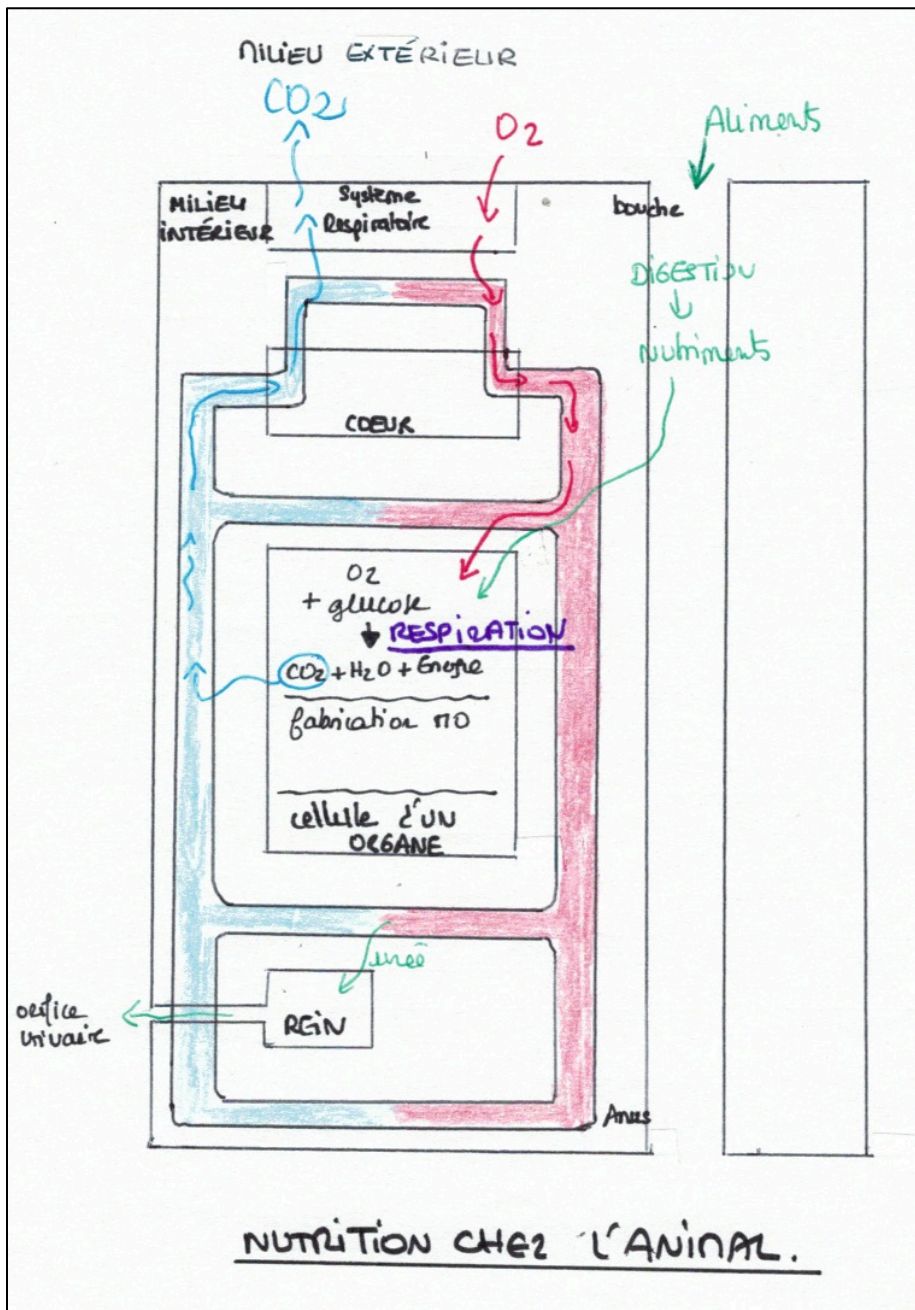 MILIEU EXTÉRIEUR
CO2
O2
Aliments
MILIEU
INTÉRIEUR
Système
Respiratoire
bouche
DIGESTION
Nutriments
COEUR
O2
+ glucose
RESPIRATION
CO2 + H2O + Energie
fabrication MO
cellule d'UN
ORGANE
urée
REIN
orifice
urinaire
Anus
NUTRITION CHEZ L'ANIMAL.